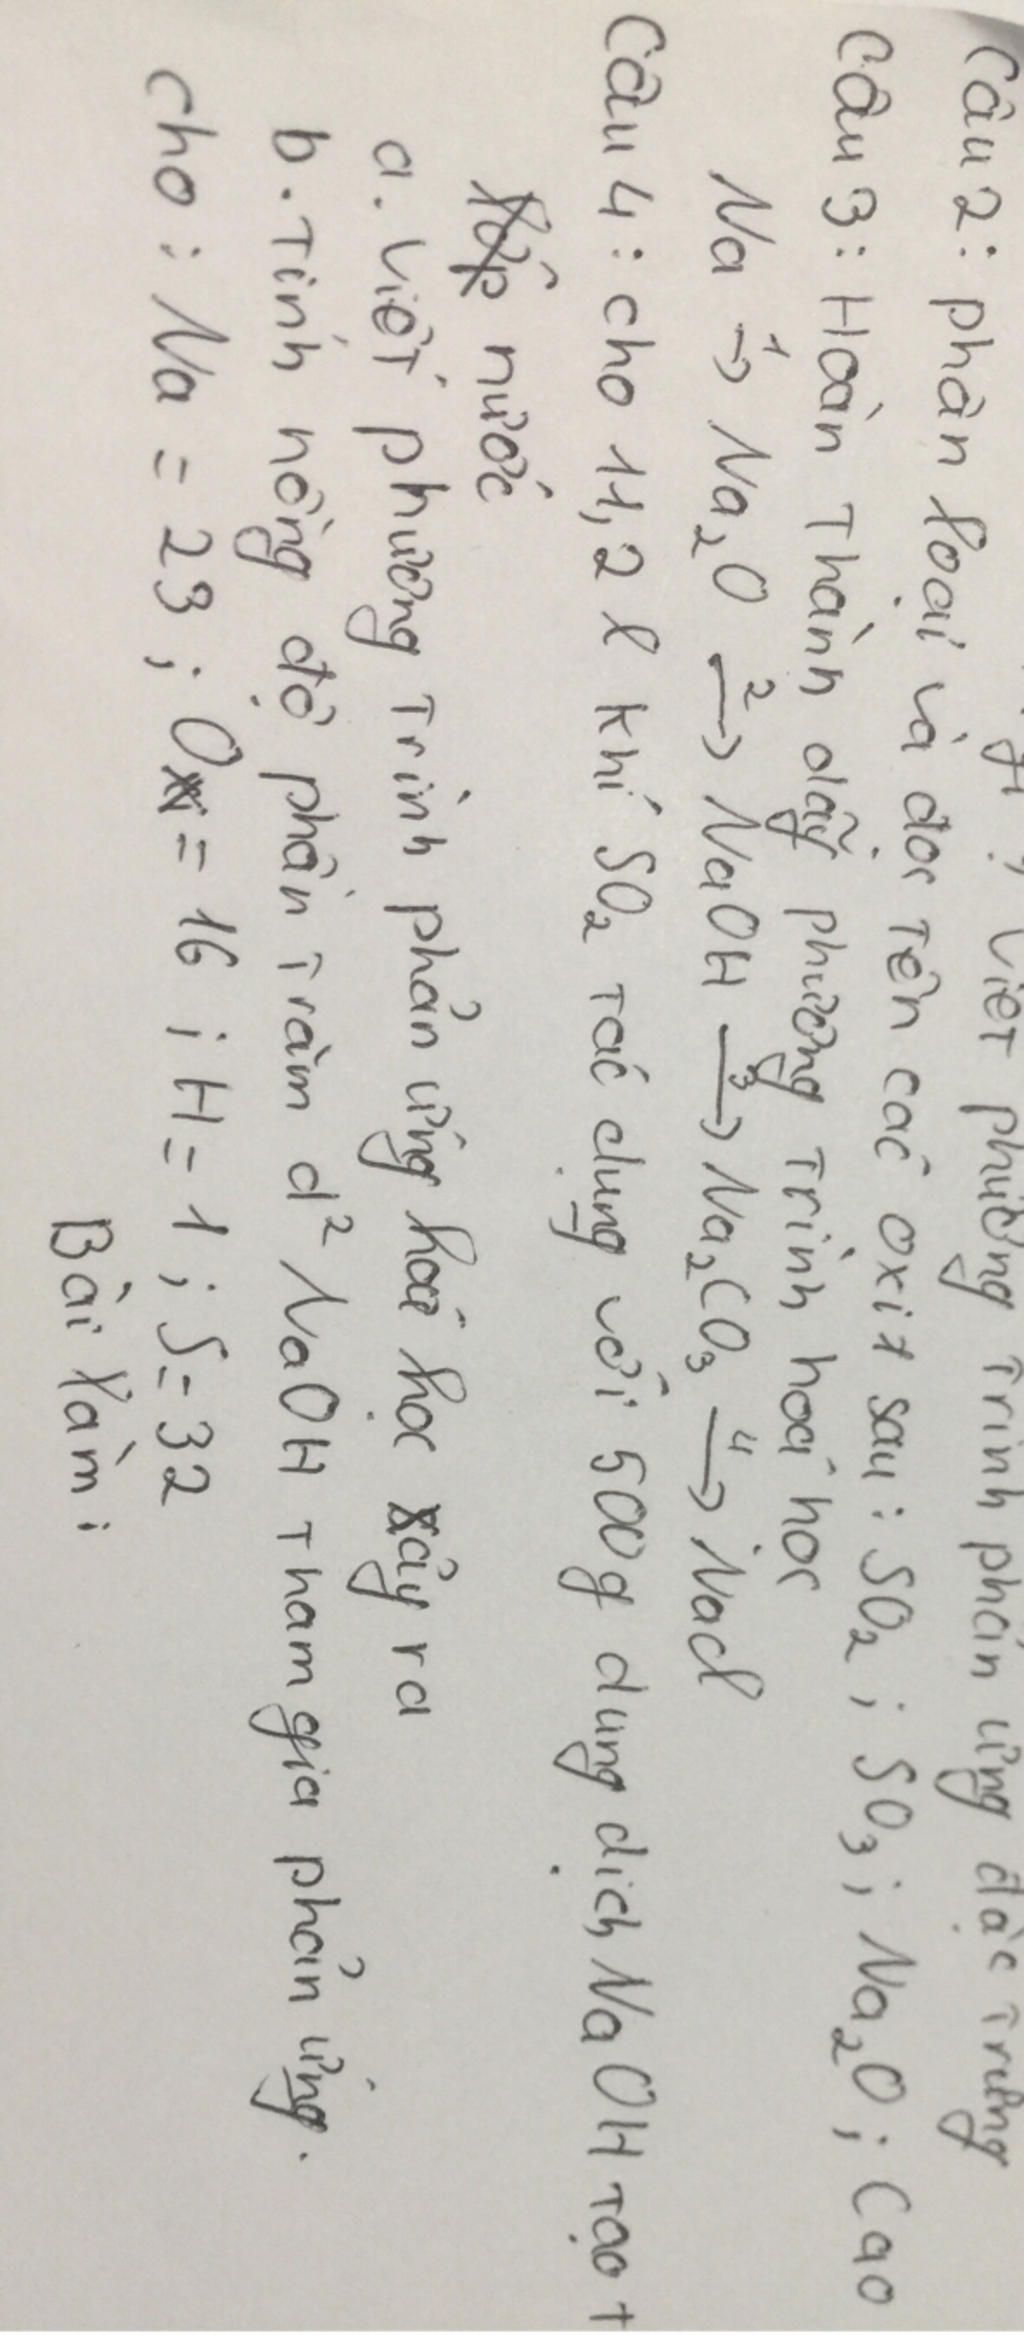 Viết phương trình phản ứng đặc trưng
Câu 2: phân loại và đọc tên các oxit sau: SO2; SO3; Na2O; CaO
Câu 3: Hoàn Thành dãy phương trình hoá học
Na 1→ Na2O 2→ NaOH 3→ Na2CO3 4→ NaCl
Câu 4: cho 11,2 l khí SO2 tác dụng với 500g dung dịch NaOH tạo +
nước
a. Viết phương trình phản ứng hoá học xảy ra
b. Tính nồng độ phần trăm d² NaOH tham gia phản ứng.
cho: Na = 23; O = 16; H = 1; S = 32
Bài làm: